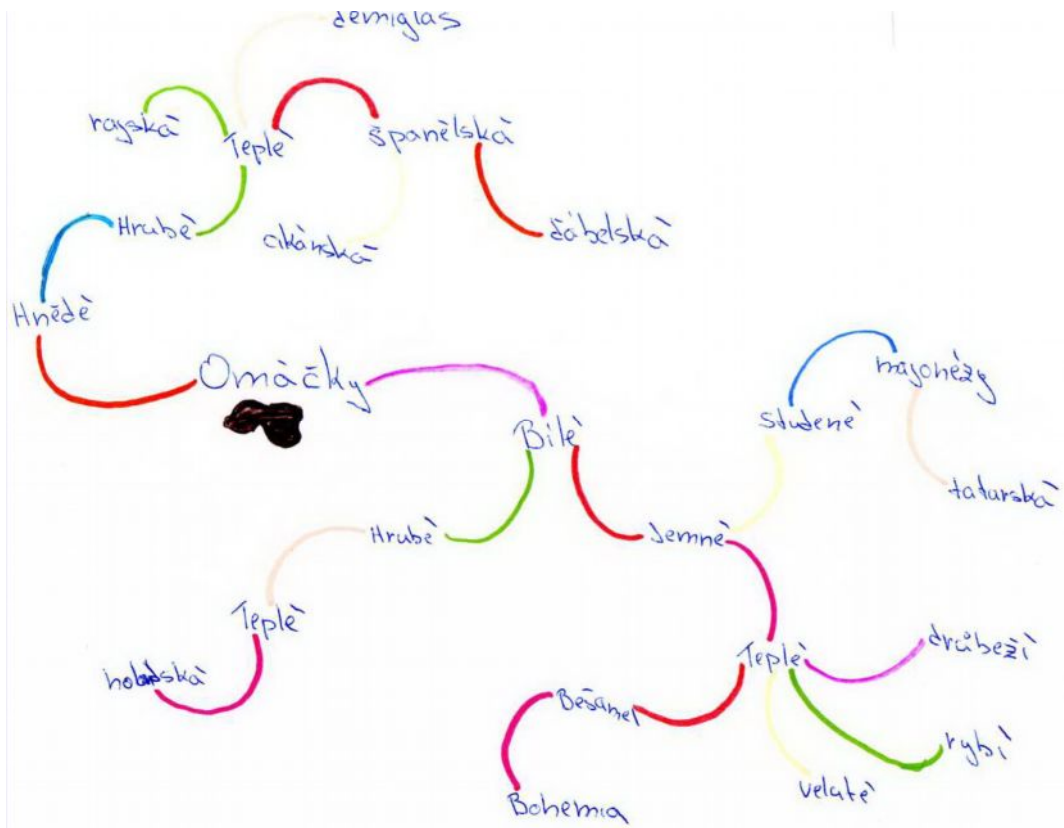 demiglas
rajská
Teplé
španělská
Hrubé
cikánská
ďábelská
Hnědé
Omáčky
majonézy
studené
Bílé
tatarská
Hrubé
Jemné
Teplé
holandská
Teplé
drůbeží
Bešamel
rybí
velaté
Bohemia